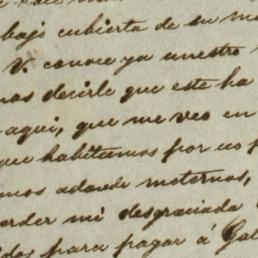 bajo cubierta de su
V. conoce ya nuestro
decirle que este ha
aqui, que me veo en
que habitemos por
adonde meternos,
mi desgraciada
para pagar á Gal